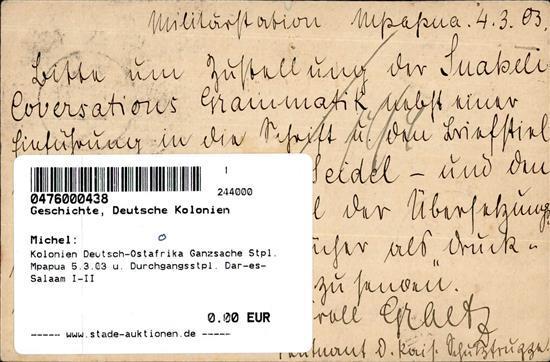 Militärstation Mpapua. 4.3.03.
Bitte um Zustellung der Suaheli
Coversations Grammatik nebst einer
Einführung in die Schrift u. den Briefstiel
Seidel - und den
der Übersetzung
ücher als "Druck-
zu senden.
Graetz
Leutnant d. Kais. Schutztruppe
I
244000
0476000438
Geschichte, Deutsche Kolonien
Michel: o
Kolonien Deutsch-Ostafrika Ganzsache Stpl.
Mpapua 5.3.03 u. Durchgangsstpl. Dar-es-
Salaam I-II
0.00 EUR
----- www.stade-auktionen.de -----